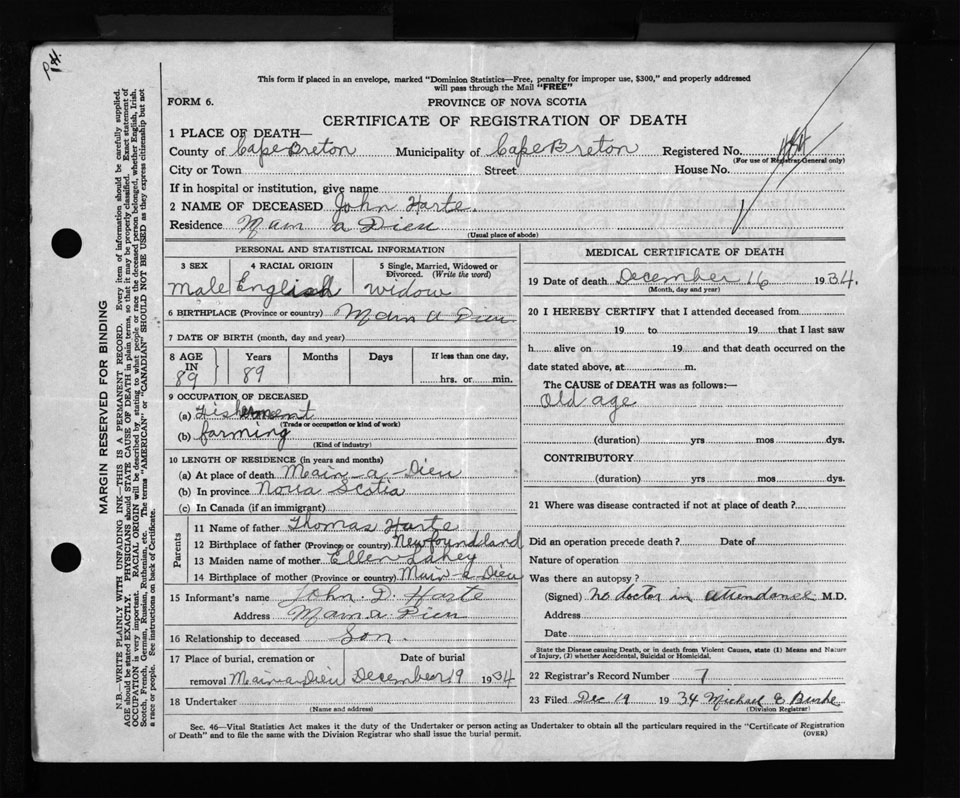 This form if placed in an envelope, marked "Dominion Statistics—Free, penalty for improper use, $300," and properly addressed
will pass through the Mail "FREE"
FORM 6.
PROVINCE OF NOVA SCOTIA
CERTIFICATE OF REGISTRATION OF DEATH
1 PLACE OF DEATH—
County of Cape Breton Municipality of Cape Breton Registered No.
(For use of Registrar General only)
City or Town Street House No.
If in hospital or institution, give name
2 NAME OF DECEASED John Harte
Residence Main a Dieu
(Usual place of abode)
PERSONAL AND STATISTICAL INFORMATION
3 SEX 4 RACIAL ORIGIN 5 Single, Married, Widowed or Divorced. (Write the word)
Male English Widow
6 BIRTHPLACE (Province or country) Main a Dieu
7 DATE OF BIRTH (month, day and year)
8 AGE IN Years Months Days If less than one day,
89 89 hrs. or min.
9 OCCUPATION OF DECEASED
(a)
(Trade or occupation or kind of work)
(b) farming
(Kind of industry)
10 LENGTH OF RESIDENCE (in years and months)
(a) At place of death Main-a-Dieu
(b) In province Nova Scotia
(c) In Canada (if an immigrant)
Parents
11 Name of father Thomas Harte
12 Birthplace of father (Province or country) Newfoundland
13 Maiden name of mother Ellen Lahey
14 Birthplace of mother (Province or country) Main a Dieu
15 Informant's name John. D. Harte
Address Main a Dieu
16 Relationship to deceased Son.
17 Place of burial, cremation or Date of burial
removal Main-a-Dieu December 19 1934
18 Undertaker
(Name and address)
MEDICAL CERTIFICATE OF DEATH
19 Date of death December 16 1934.
(Month, day and year)
20 I HEREBY CERTIFY that I attended deceased from
19 to 19 that I last saw
h alive on 19 and that death occurred on the
date stated above, at m.
The CAUSE of DEATH was as follows:—
Old age
(duration) yrs mos dys.
CONTRIBUTORY
(duration) yrs mos dys.
21 Where was disease contracted if not at place of death?
Did an operation precede death? Date of
Nature of operation
Was there an autopsy?
(Signed) no doctor in attendance M.D.
Address
Date
State the Disease causing Death, or in death from Violent Causes, state (1) Means and Nature
of Injury, (2) whether Accidental, Suicidal or Homicidal.
22 Registrar's Record Number 7
23 Filed Dec 19 1934 Michael E Burke
(Division Registrar)
Sec. 46—Vital Statistics Act makes it the duty of the Undertaker or person acting as Undertaker to obtain all the particulars required in the "Certificate of Registration
of Death" and to file the same with the Division Registrar who shall issue the burial permit.
(OVER)
MARGIN RESERVED FOR BINDING
N.B.—WRITE PLAINLY WITH UNFADING INK—THIS IS A PERMANENT RECORD. Every item of information should be carefully supplied.
AGE should be stated EXACTLY. PHYSICIANS should STATE CAUSE OF DEATH in plain terms, so that it may be properly classified. Exact statement of
OCCUPATION is very important. RACIAL ORIGIN will be described by stating to what people or race the deceased person belonged, whether English, Irish,
Scotch, French, German, Russian, Ruthenian, etc. The terms "AMERICAN" or "CANADIAN" SHOULD NOT BE USED as they express citizenship but not
a race or people. See instructions on back of Certificate.